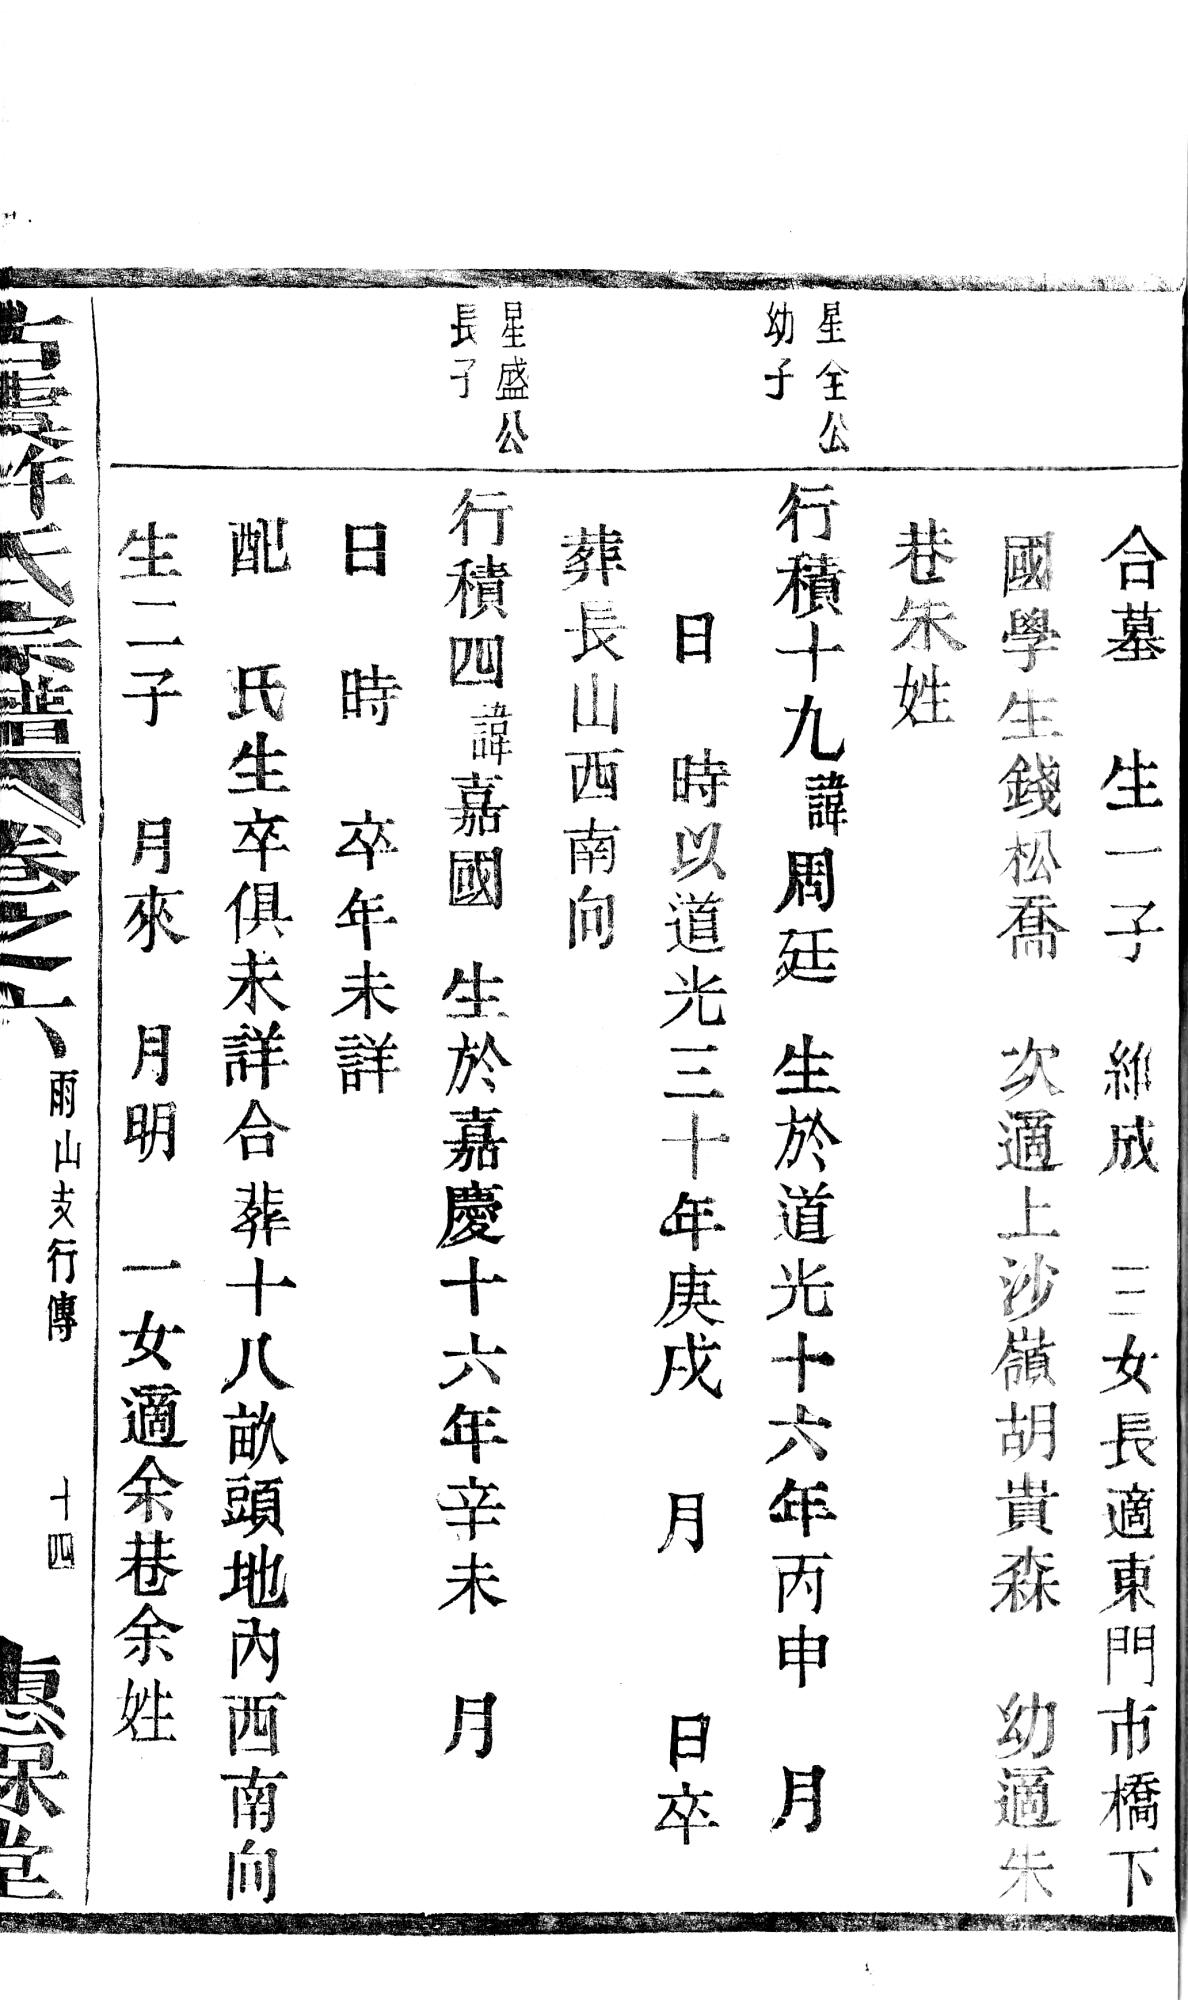 合墓　生一子　維成　三女長適東門市橋下
國學生錢松喬　次適上沙嶺胡貴森　幼適朱
巷朱姓
星全公
幼子
行積十九諱周廷　生於道光十六年丙申　月
日　時以道光三十年庚戌　月　日卒
葬長山西南向
星盛公
長子
行積四諱嘉國　生於嘉慶十六年辛未　月
日　時　卒年未詳
配　氏生卒俱未詳合葬十八畝頭地內西南向
生二子　月來　月明　一女適余巷余姓
古虞許氏宗譜　卷之六　雨山支行傳　十四　惠保堂